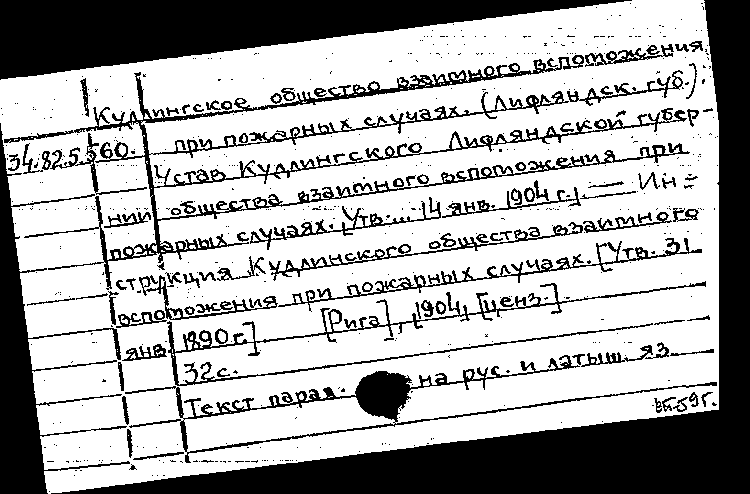 Кудлингское общество взаимного вспоможения
34.82.5.560. при пожарных случаях. (Лифляндск. губ.).
Устав Кудлингского Лифляндской губер-
нии общества взаимного вспоможения при
пожарных случаях. [Утв.... 14 янв. 1904 г.]. — Ин=
струкция Кудлинского общества взаимного
вспоможения при пожарных случаях. [Утв. 31
янв. 1890 г.] [Рига], 1904, [ценз.].
32 с.
Текст парал. на рус. и латыш. яз.